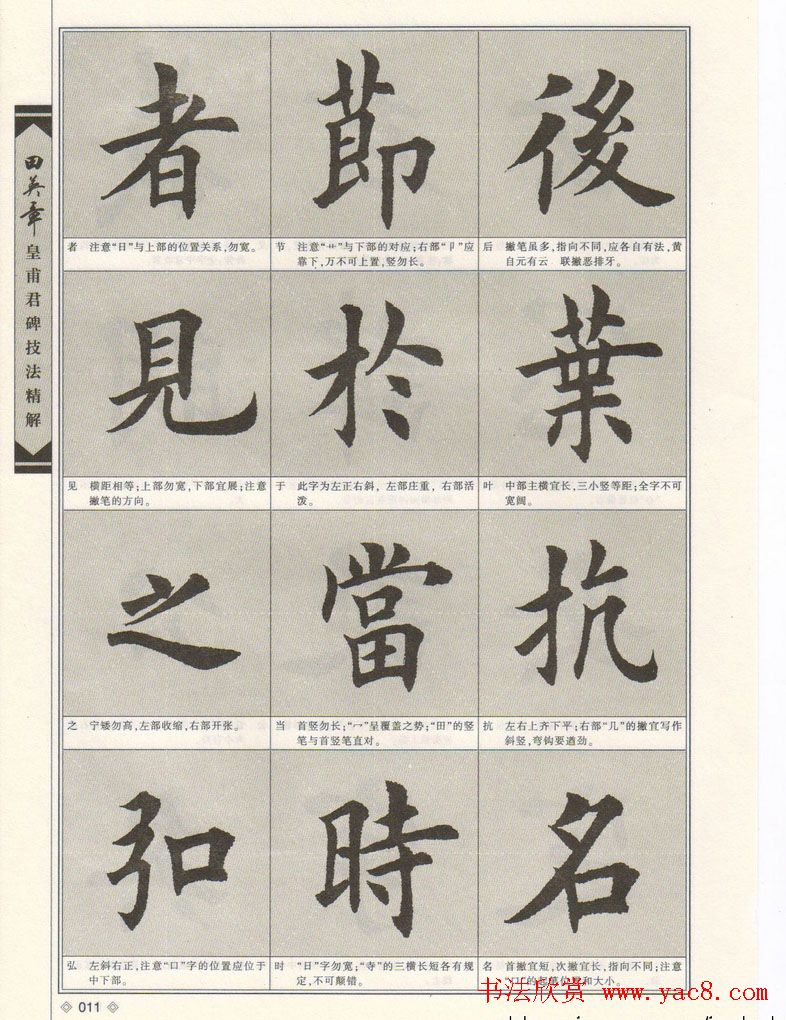 田英章
皇甫君碑技法精解
者
節
後
者 注意“日”与上部的位置关系,勿宽。
节 注意“艹”与下部的对应;右部“卩”应
靠下,万不可上置,竖勿长。
后 撇笔虽多,指向不同,应各自有法,黄
自元有云 联撇恶排牙。
見
於
葉
见 横距相等;上部勿宽,下部宜展;注意
撇笔的方向。
于 此字为左正右斜,左部庄重,右部活
泼。
叶 中部主横宜长,三小竖等距;全字不可
宽阔。
之
當
抗
之 宁矮勿高,左部收缩,右部开张。
当 首竖勿长;“冖”呈覆盖之势;“田”的竖
笔与首竖笔直对。
抗 左右上齐下平;右部“几”的撇宜写作
斜竖,弯钩要遒劲。
弘
時
名
弘 左斜右正,注意“口”字的位置应位于
中下部。
时 “日”字勿宽;“寺”的三横长短各有规
定,不可颠错。
名 首撇宜短,次撇宜长,指向不同;注意
“口”的起笔位置和大小。
书法欣赏 www.yac8.com
011